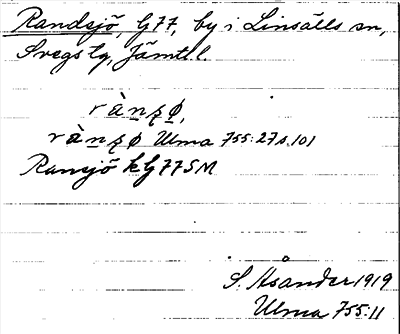 Randsjö, G77, by i Linsälls sn,
Svegs tg, Jämtl. l.
rànʂø,
rànʂø Ulma 755:27 s. 101
Ransjö kG77SM
S. Åsander 1919
Ulma 755:11